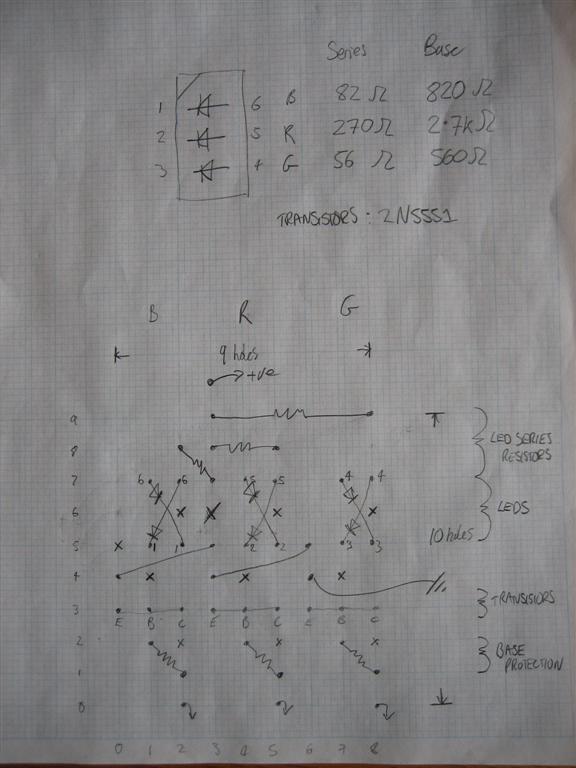 Series Base
1 6 B 82 Ω 820 Ω
2 5 R 270 Ω 2.7k Ω
3 4 G 56 Ω 560 Ω
TRANSISTORS : 2N5551
B R G
9 holes
+ve
9
8
LED SERIES
RESISTORS
7 6 6 5 5 4 4
6 LEDS
5 1 1 2 2 3 3 10 holes
4
3 TRANSISTORS
E B C E B C E B C
2 BASE
PROTECTION
1
0
0 1 2 3 4 5 6 7 8